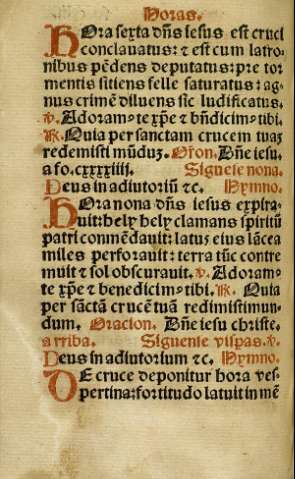 Horas.
HOra sexta dñs iesus est cruci
conclauatus: ⁊ est cum latro⸗
nibus pẽdens deputatus: pre tor
mentis sitiens felle saturatus: ag⸗
nus crimẽ diluens sic ludificatus.
℣. Adoram⸗te xp̃e ⁊ bñdicim⸗tibi.
℟. Quia per sanctam crucem tuaȝ
redemisti mũduȝ. Orõn. Dñe iesu,
a fo. cxxxxiiij. Siguese nona.
Deus in adiutoriũ ⁊c. Hymno.
HOra nona dñs iesus expira⸗
uit: hely hely clamans spiritũ
patri conmẽdauit: latus eius lãcea
miles perforauit: terra tũc contre
muit ⁊ sol obscurauit. ℣. Adoram⸗
te xp̃e ⁊ benedicim⸗tibi. ℟. Quia
per sãctã crucẽ tuã redimisti mun⸗
dum. Oracion. Dñe iesu christe⸗
arriba. Siguense vispas. ℣.
Deus in adiutorium ⁊c. Hymno.
DE cruce deponitur hora ves⸗
pertina: fortitudo latuit in mẽ